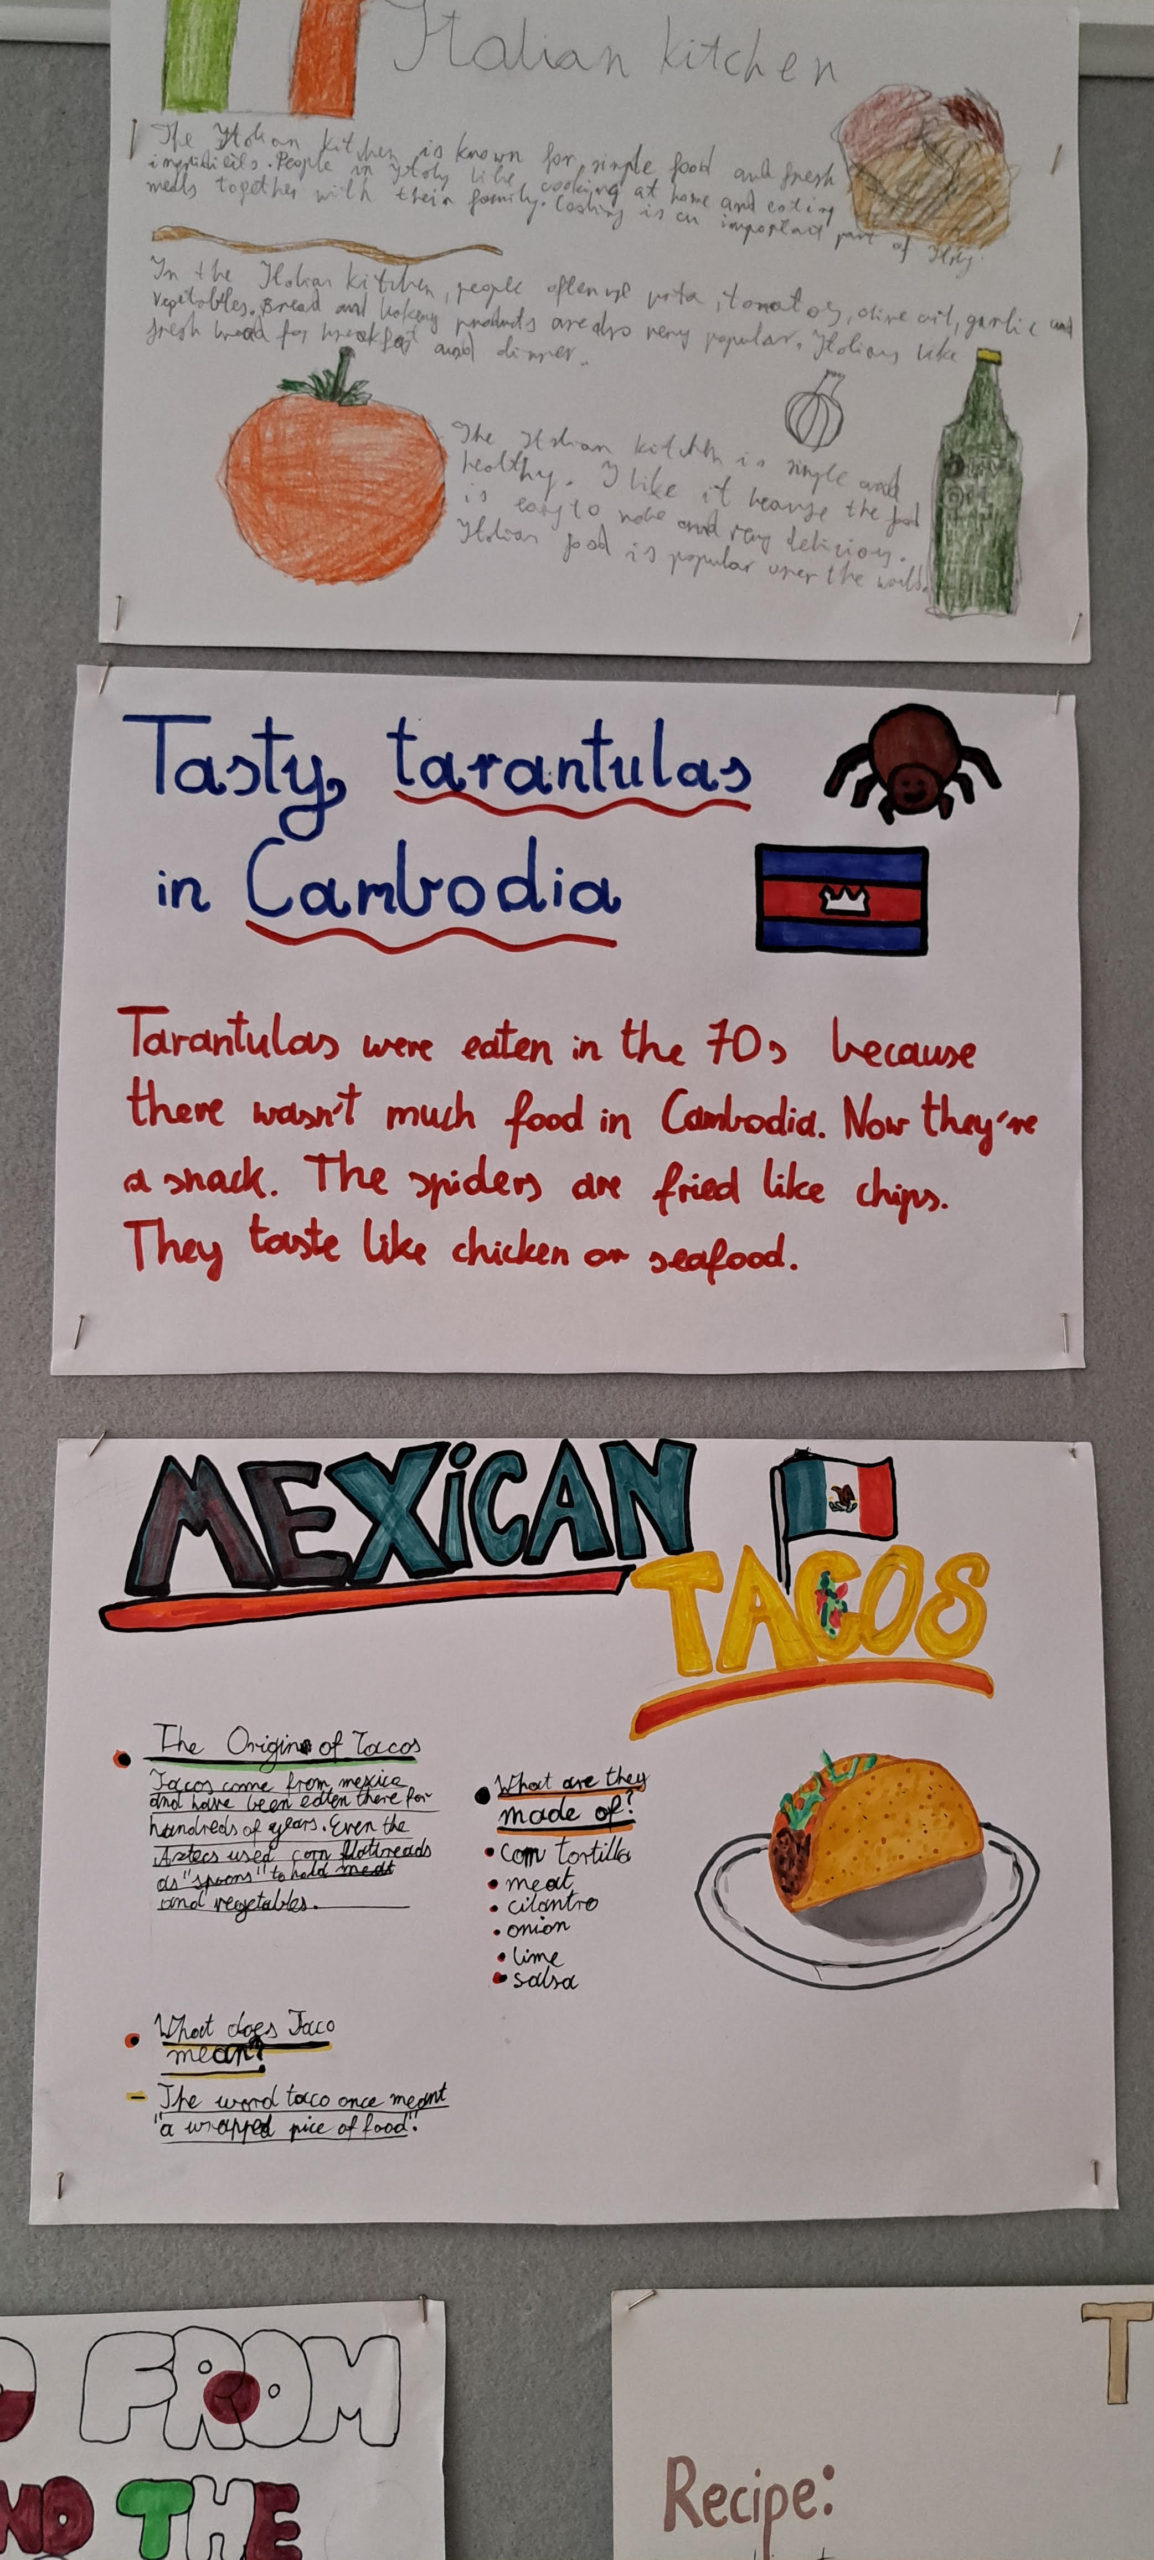 Italian kitchen
The Italian kitchen is known for simple food and fresh
People in Italy like cooking at home and eating
meals together with their family. Cooking is an important part of Italy.
In the Italian kitchen, people often use pasta, tomatos, olive oil, garlic and
vegetables. Bread and bakery products are also very popular. Italians like
fresh bread for breakfast and dinner.
The Italian kitchen is simple and
healthy. I like it because the food
is easy to make and very delicious.
Italian food is popular over the world.
Tasty tarantulas
in Cambodia
Tarantulas were eaten in the 70s because
there wasn't much food in Cambodia. Now they're
a snack. The spiders are fried like chips.
They taste like chicken or seafood.
MEXiCAN
TACOS
The Origin of Tacos
Tacos come from mexico
and have been eaten there for
hundreds of years. Even the
Aztecs used corn flatbreads
as "spoons" to hold meat
and vegetables.
What are they
made of?
corn tortilla
meat
cilantro
onion
lime
salsa
What does Taco
mean?
- The word taco once meant
"a wrapped pice of food".
FROM
THE
T
Recipe: